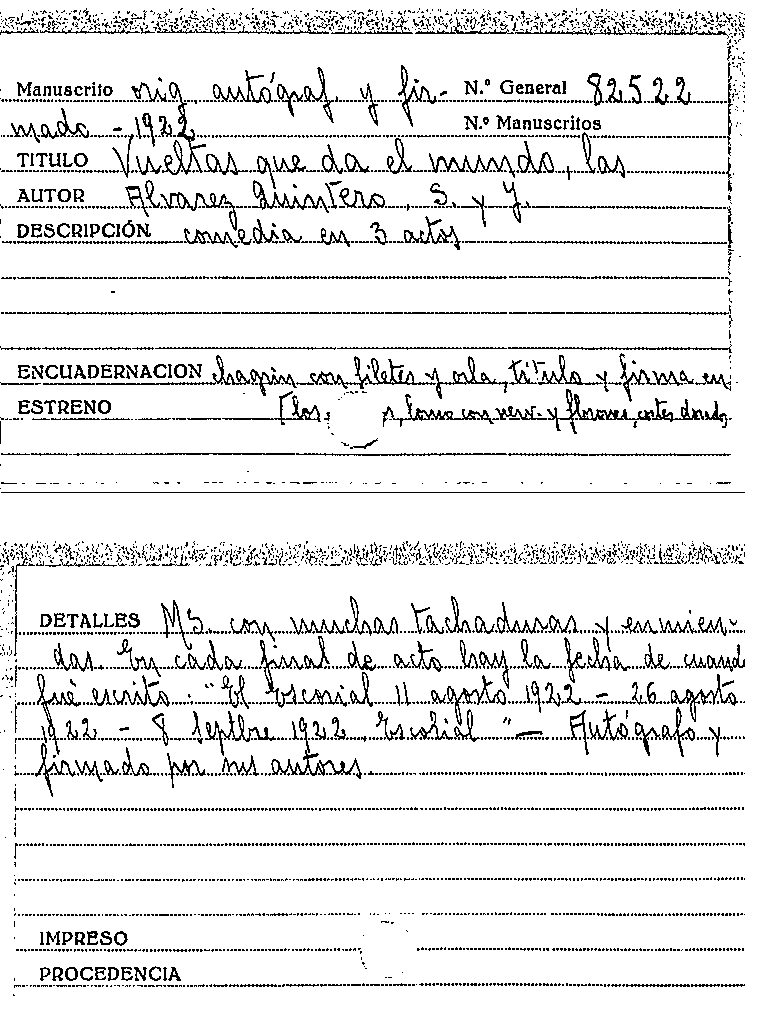 Manuscrito orig. autógraf. y fir- N.º General 82522
mado - 1922 N.º Manuscritos
TITULO Vueltas que da el mundo, las
AUTOR Alvarez Quintero, S. y J.
DESCRIPCIÓN comedia en 3 actos
ENCUADERNACION chagrin con filetes y orla, título y firma en
ESTRENO [las, lomo con nerv. y florones, cortes dorads
DETALLES MS. con muchas tachaduras y enmien-
das. En cada final de acto hay la fecha de cuand
fué escrito. "El Escorial 11 agosto 1922 - 26 agosto
1922 - 8 Septbre 1922 Escorial" — Autógrafo y
firmado por sus autores.
IMPRESO
PROCEDENCIA